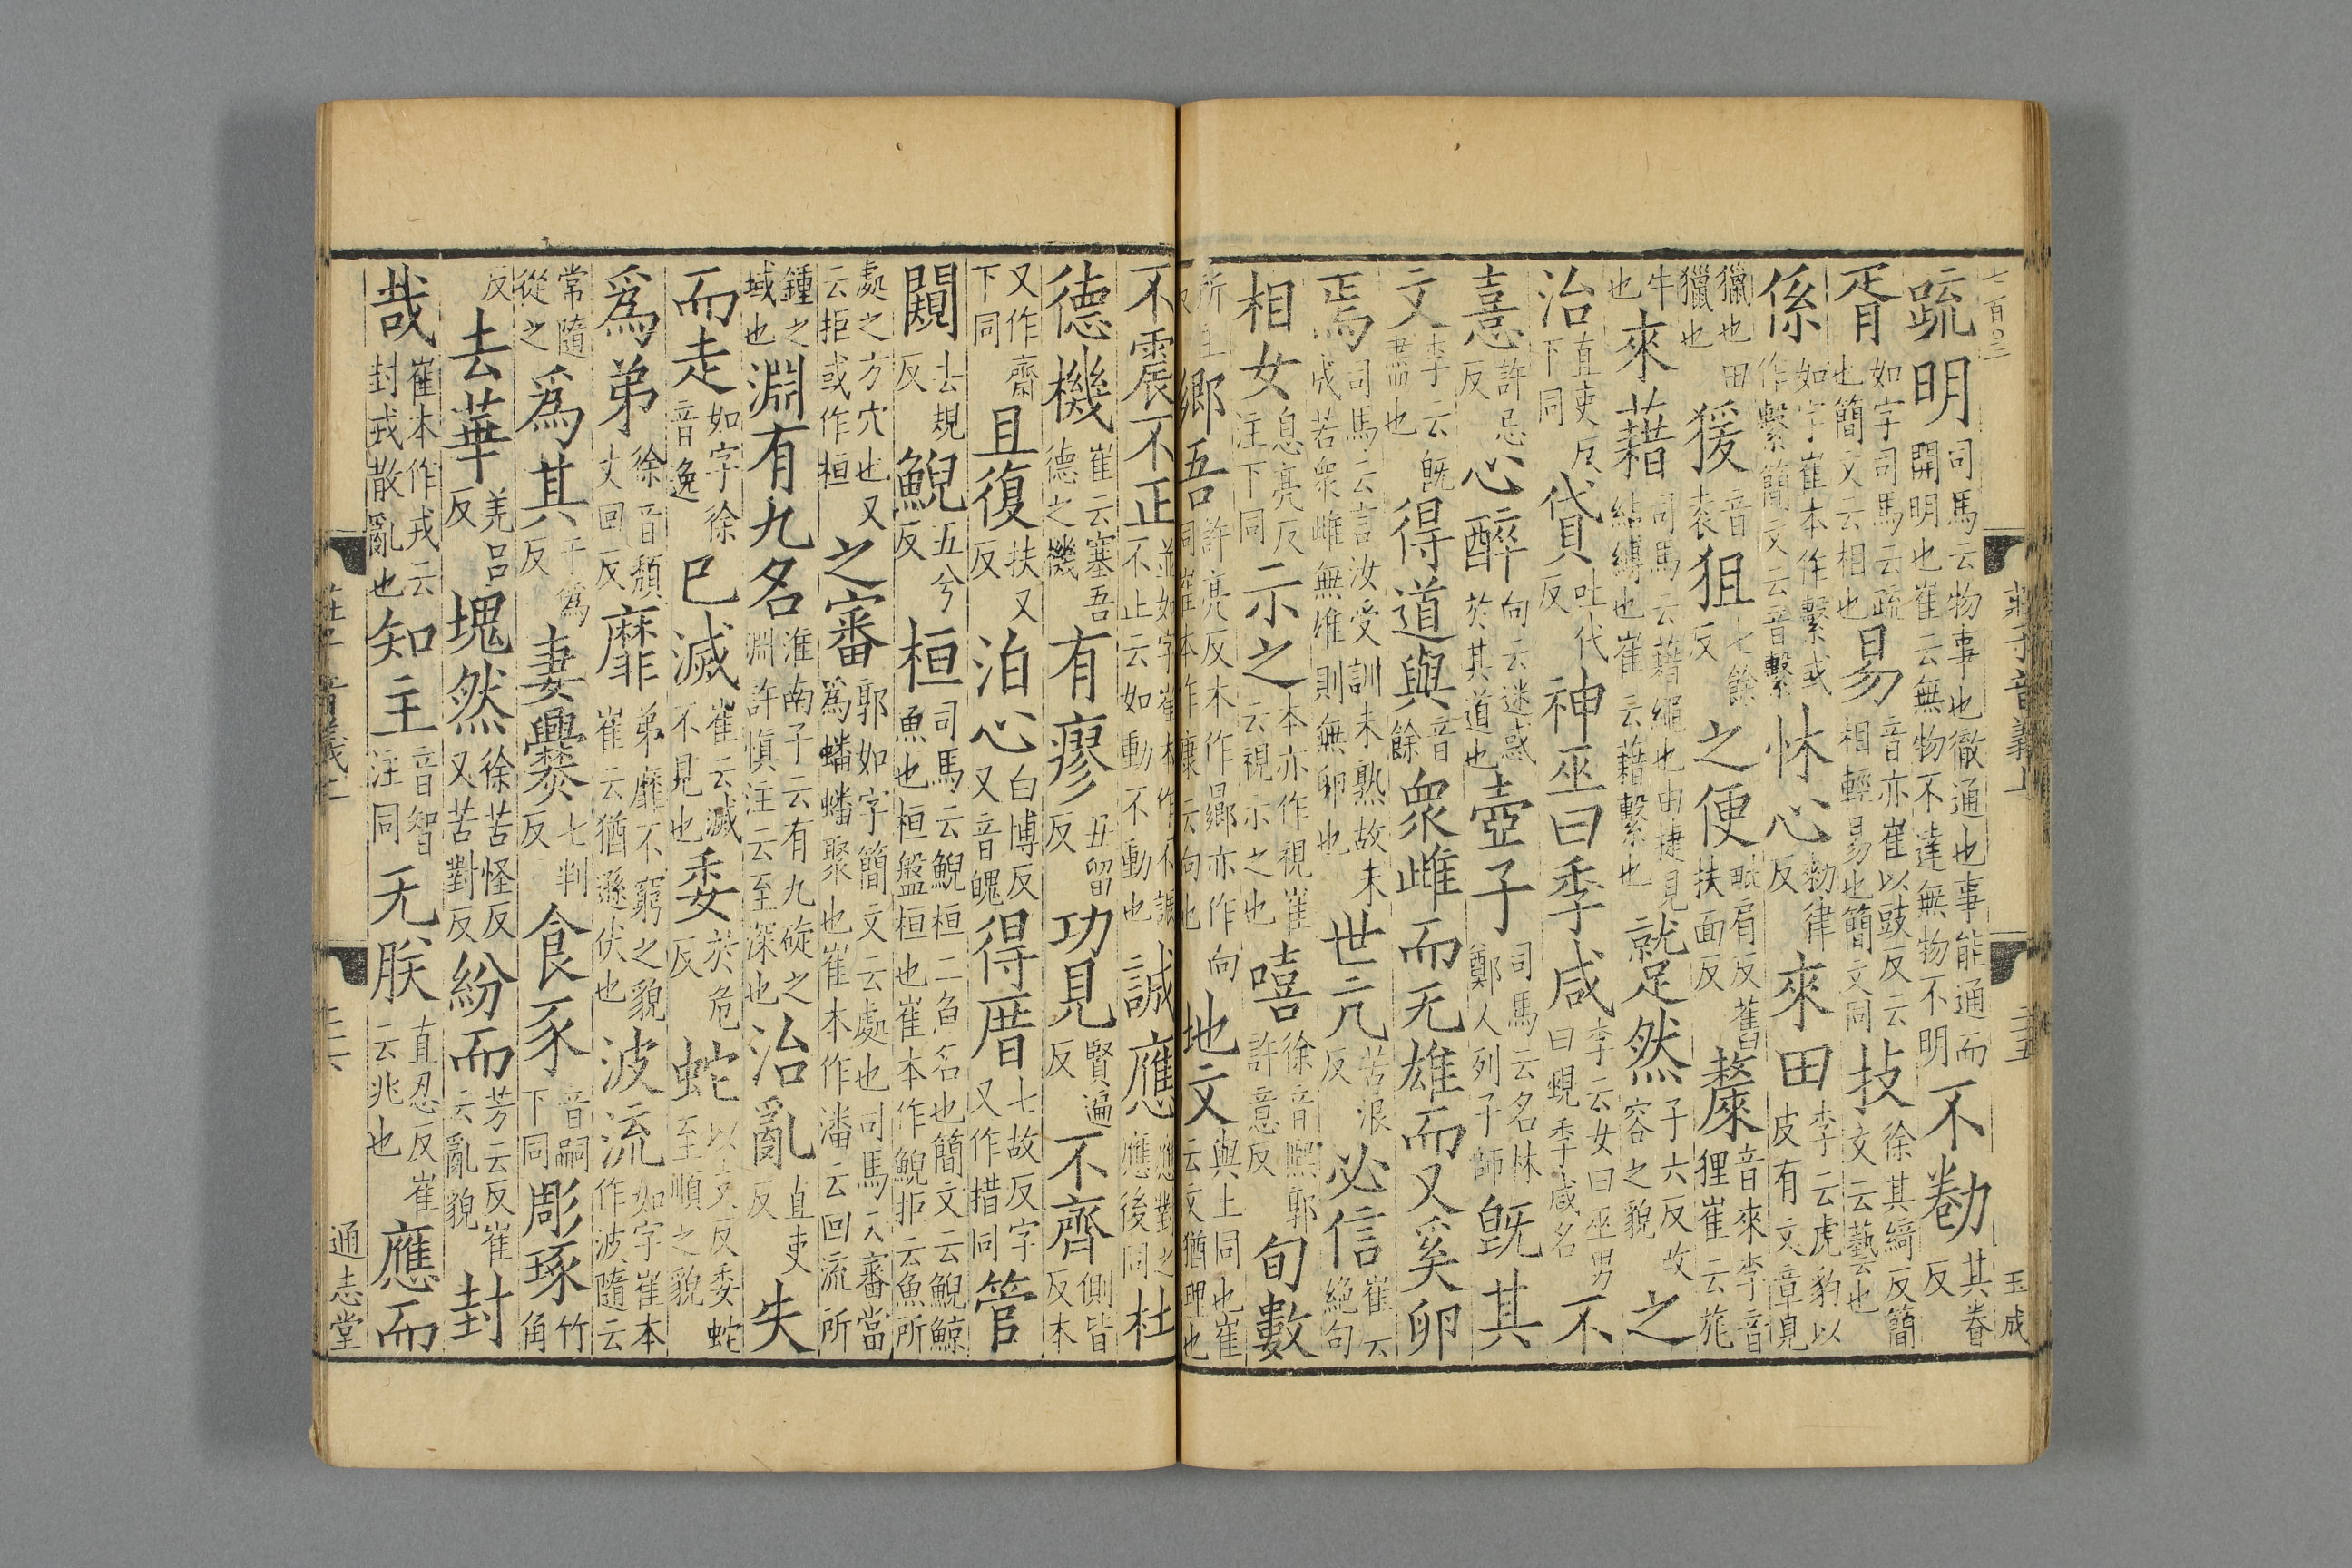 七百
疏明司馬云物事也徹通也事能通而開明也崔云無物不達無物不明不勌其眷反
胥如字司馬云疏也簡文云相也易音亦崔以豉反云相輕易也簡文同技徐其綺反簡文云藝也
係如字崔本作繫或作繫簡文云音繫怵心勑律反來田李云虎豹以皮有文章見
獵也田獵也猨音袁狙七餘反之便毗肩反舊扶面反斄音來李音狸崔云旄
牛也來藉司馬云藉繩也由捷見結縛也崔云藉繫也蹵然子六反改容之貌之
治直吏反下同貸吐代反神巫曰季咸李云女曰巫男曰覡季咸名不
憙許忌反心醉向云迷惑於其道也壺子司馬云名林鄭人列子師旣其
文李云旣盡也得道與音餘衆雌而无雄而又奚卵
焉司馬云言汝受訓未熟故未成若衆雌無雄則無卵也世亢苦浪反必信崔云絕句
相女息亮反注下同示之本亦作視崔云視示之也嘻徐音熙郭許意反旬數
所主反鄉吾許亮反本作曏亦作向同崔本作康云向也地文與土同也崔云文猶理也
莊子音義上 三五 玉成
不震不正並如字崔本作不誫不止云如動不動也誠應應對之應後同杜
德機崔云塞吾德之機有瘳丑留反功見賢遍反不齊側皆反本
又作齋下同且復扶又反泊心白博反又音魄得厝七故反字又作措同管
闚去規反鯢五兮反桓司馬云鯢桓二魚名也簡文云鯢鯨魚也桓盤桓也崔本作鯢拒云魚所
處之方穴也又云拒或作桓之審郭如字簡文云處也司馬云審當爲蟠蟠聚也崔本作潘云回流所
鍾之域也淵有九名淮南子云有九碇之淵許愼注云至深也治亂直吏反失
而走如字徐音逸已滅崔云滅不見也委於危反蛇以支反委蛇至順之貌
爲弟徐音頹丈回反靡弟靡不窮之貌崔云猶遜伏也波流如字崔本作波隨云
常隨從之爲其于僞反妻爨七判反食豕音嗣下同彫琢竹角
反去華羌呂反塊然徐苦怪反又苦對反紛而芳云反崔云亂貌封
哉崔本作戎云封戎散亂也知主音智注同无朕直忍反崔云兆也應而
通志堂